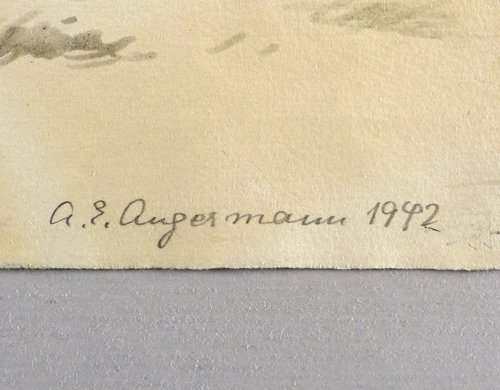 A. E. Angermann 1942